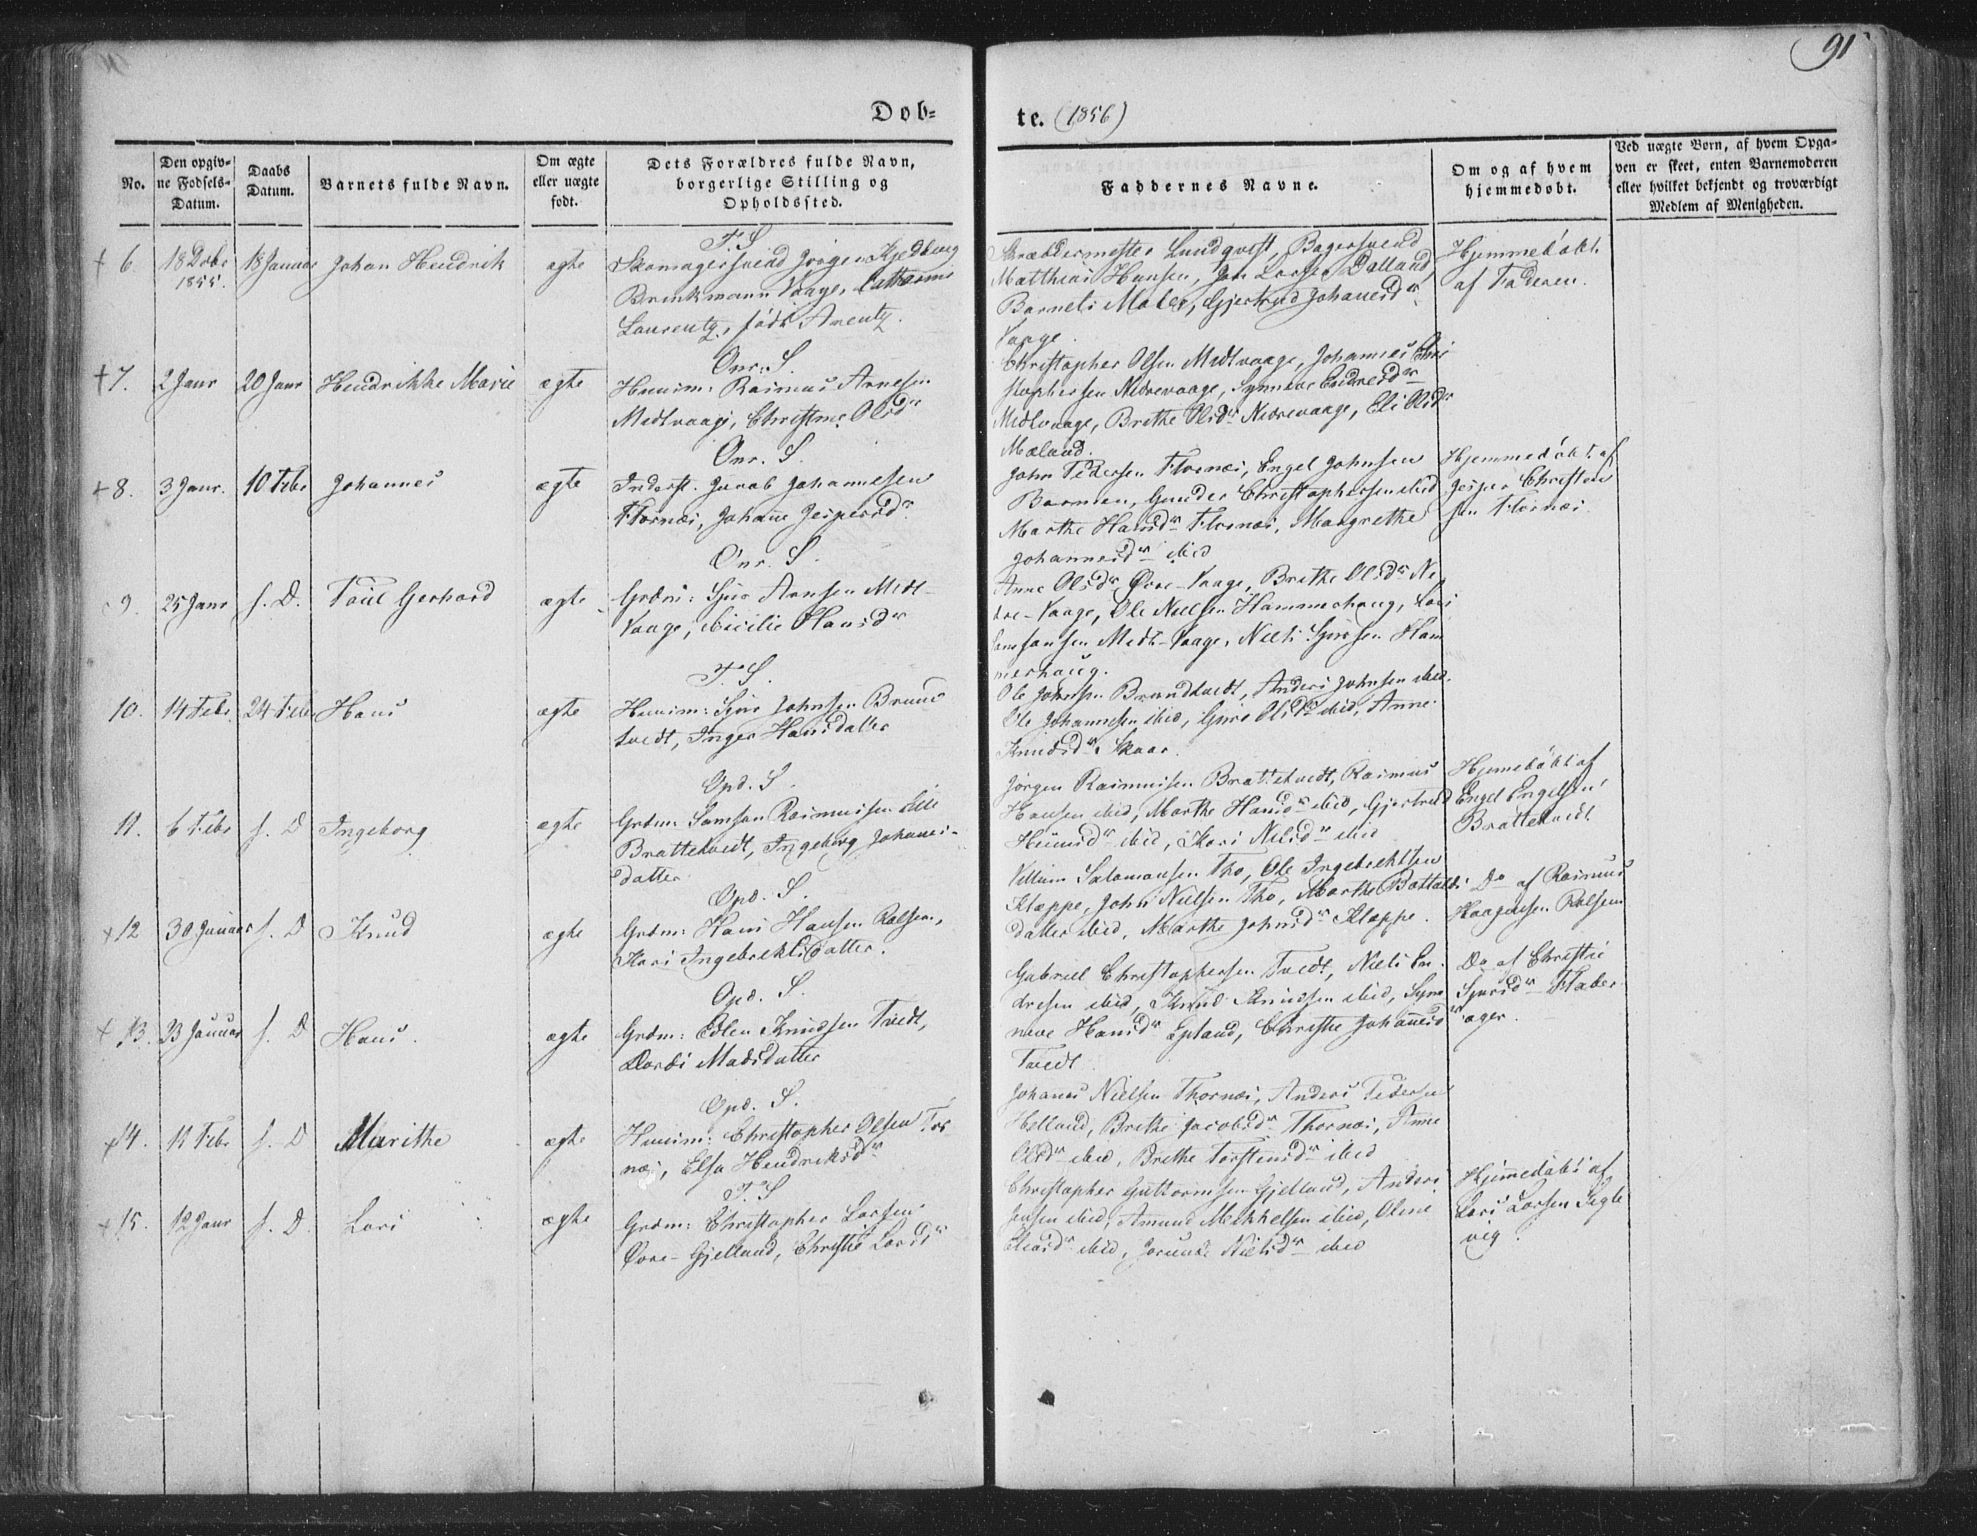 91
Døb=
te. (1856)
No.
Den opgiv-
ne Fødsels-
Datum.
Daabs
Datum.
Barnets fulde Navn.
Om ægte
eller uægte
født.
Dets Forældres fulde Navn,
borgerlige Stilling og
Opholdssted.
Faddernes Navne.
Om og af hvem
hjemmedøbt.
Ved uægte Børn, af hvem Opga-
ven er skeet, enten Barnemoderen
eller hvilket bekjendt og troværdigt
Medlem af Menigheden.
+ 6.
18 Debr
1855.
18 Januar
Johan Hendrik
ægte
F. S
Skomagersvend Jörgen
Brinkmann Vaage, Cathrine
Laurentz, född Arentz.
Skræddermester Lundqvist, Bagersvend
Matthias Hansen, Lars Dalland,
Barnets Moder, Gjertrud Johanesdr
Vaage.
Hjemmedöbt
af Faderen.
+ 7.
2 Janr
20 Janr
Hendrikke Marie
ægte
Onr: S.
Huusm: Rasmus Arnesen
Midtvaage, Christine Olsdr
Christopher Olsen Midtvaage, Johannes Chri
stophersen Nedrevaage, Synneve Endresdr
Midtvaage, Brithe Olsdr Nedrevaage, Eli Olsdr
Mæland.
+ 8.
3 Janr.
10 Febr
Johannes
ægte
Onr. S.
Inderst. Jacob Johannesen
Flornæs, Johanne Jespersdr
John Pedersen Flornæs, Engel Johnsen
Barmen, Gunder Christophersen ibid
Marthe Hansdr Flornæs, Margrethe
Johannesdr ibid
Hjemmedöbt af
Jesper Christen
sen Flornæs.
9.
25 Janr
s. D.
Poul Gerhard
ægte
Onr. S.
Grdm: Sjur Arnsen Midt-
Vaage, Cicilie Hansdr
Anne Olsdr Øvre-Vaage, Brithe Olsdr Ne
dre-Vaage, Ole Nielsen Hammerhaug, Lars
Midt-Vaage, Niels Sjursen Ham
merhaug.
10.
14 Febr.
24 Febr
Hans
ægte
F. S.
Huusm: Sjur Johnsen Brund
tvedt, Inger Hansdatter
Ole Johnsen Brundtvedt, Anders Johnsen ibid.
Ole Johannesen ibid, Guro Olsdr ibid, Anne
Knudsdr Skaar.
11.
6 Febr
s. D
Ingeborg
ægte
Opd. S.
Grdm: Samson Rasmussen Lille
Brattetvedt, Ingeborg Johanes-
datter
Jörgen Rasmussen Brattetvedt, Rasmus
Hansen ibid, Marthe Hansdr ibid, Gjertrud
ibid, Kari Nilsdr ibid
Hjemedöbt af
Engel Engelsen
Brattetvedt
+ 12
30 Januar
s. D
Knud
ægte
Opd. S.
Grdm: Hans Hansen Rolfsnes,
Kari Ingebrektsdatter.
Villum Salamonsen Tho, Ole Ingebrektsen
Klæppe, John Nielsen Tho, Marthe
datter ibid, Marthe Johnsdr Klæppe.
Do af Rasmus
Haagensen Rolfsnes
+ 13.
23 Januar
s. D
Hans.
ægte
Opd. S.
Grdm: Knudsen Tvedt,
Madsdatter
Gabriel Christophersen Tvedt, Niels En-
dresen ibid, Knud Knudsen ibid, Syn
neve Hansdr Epland, Christhe Johanesdr
Tvedt.
Do af Christie
Sjursdr Flaber-
ager.
+ 14.
11 Febr
s. D
Marithe
ægte
Opd. S.
Huusm: Christopher Olsen Tor
næs, Elsa Hendriksdr
Johanes Nielsen Thornæs, Anders Pedersen
Helland, Brithe Jacobsdr Thornæs, Anne
Olsdr ibid, Brithe Torstensdr ibid
+ 15.
12 Janr
s. D.
Lars
ægte
F. S
Grdm: Christopher Larsen
Øvre-Gjelland, Christie Larsdr
Christopher Guttormsen Gjelland, Anders
Jensen ibid, Amund Mikkelsen ibid, Oline
ibid, Nielsdr ibid
Hjemmedöbt af
Lars Larsen Tegle
vig.